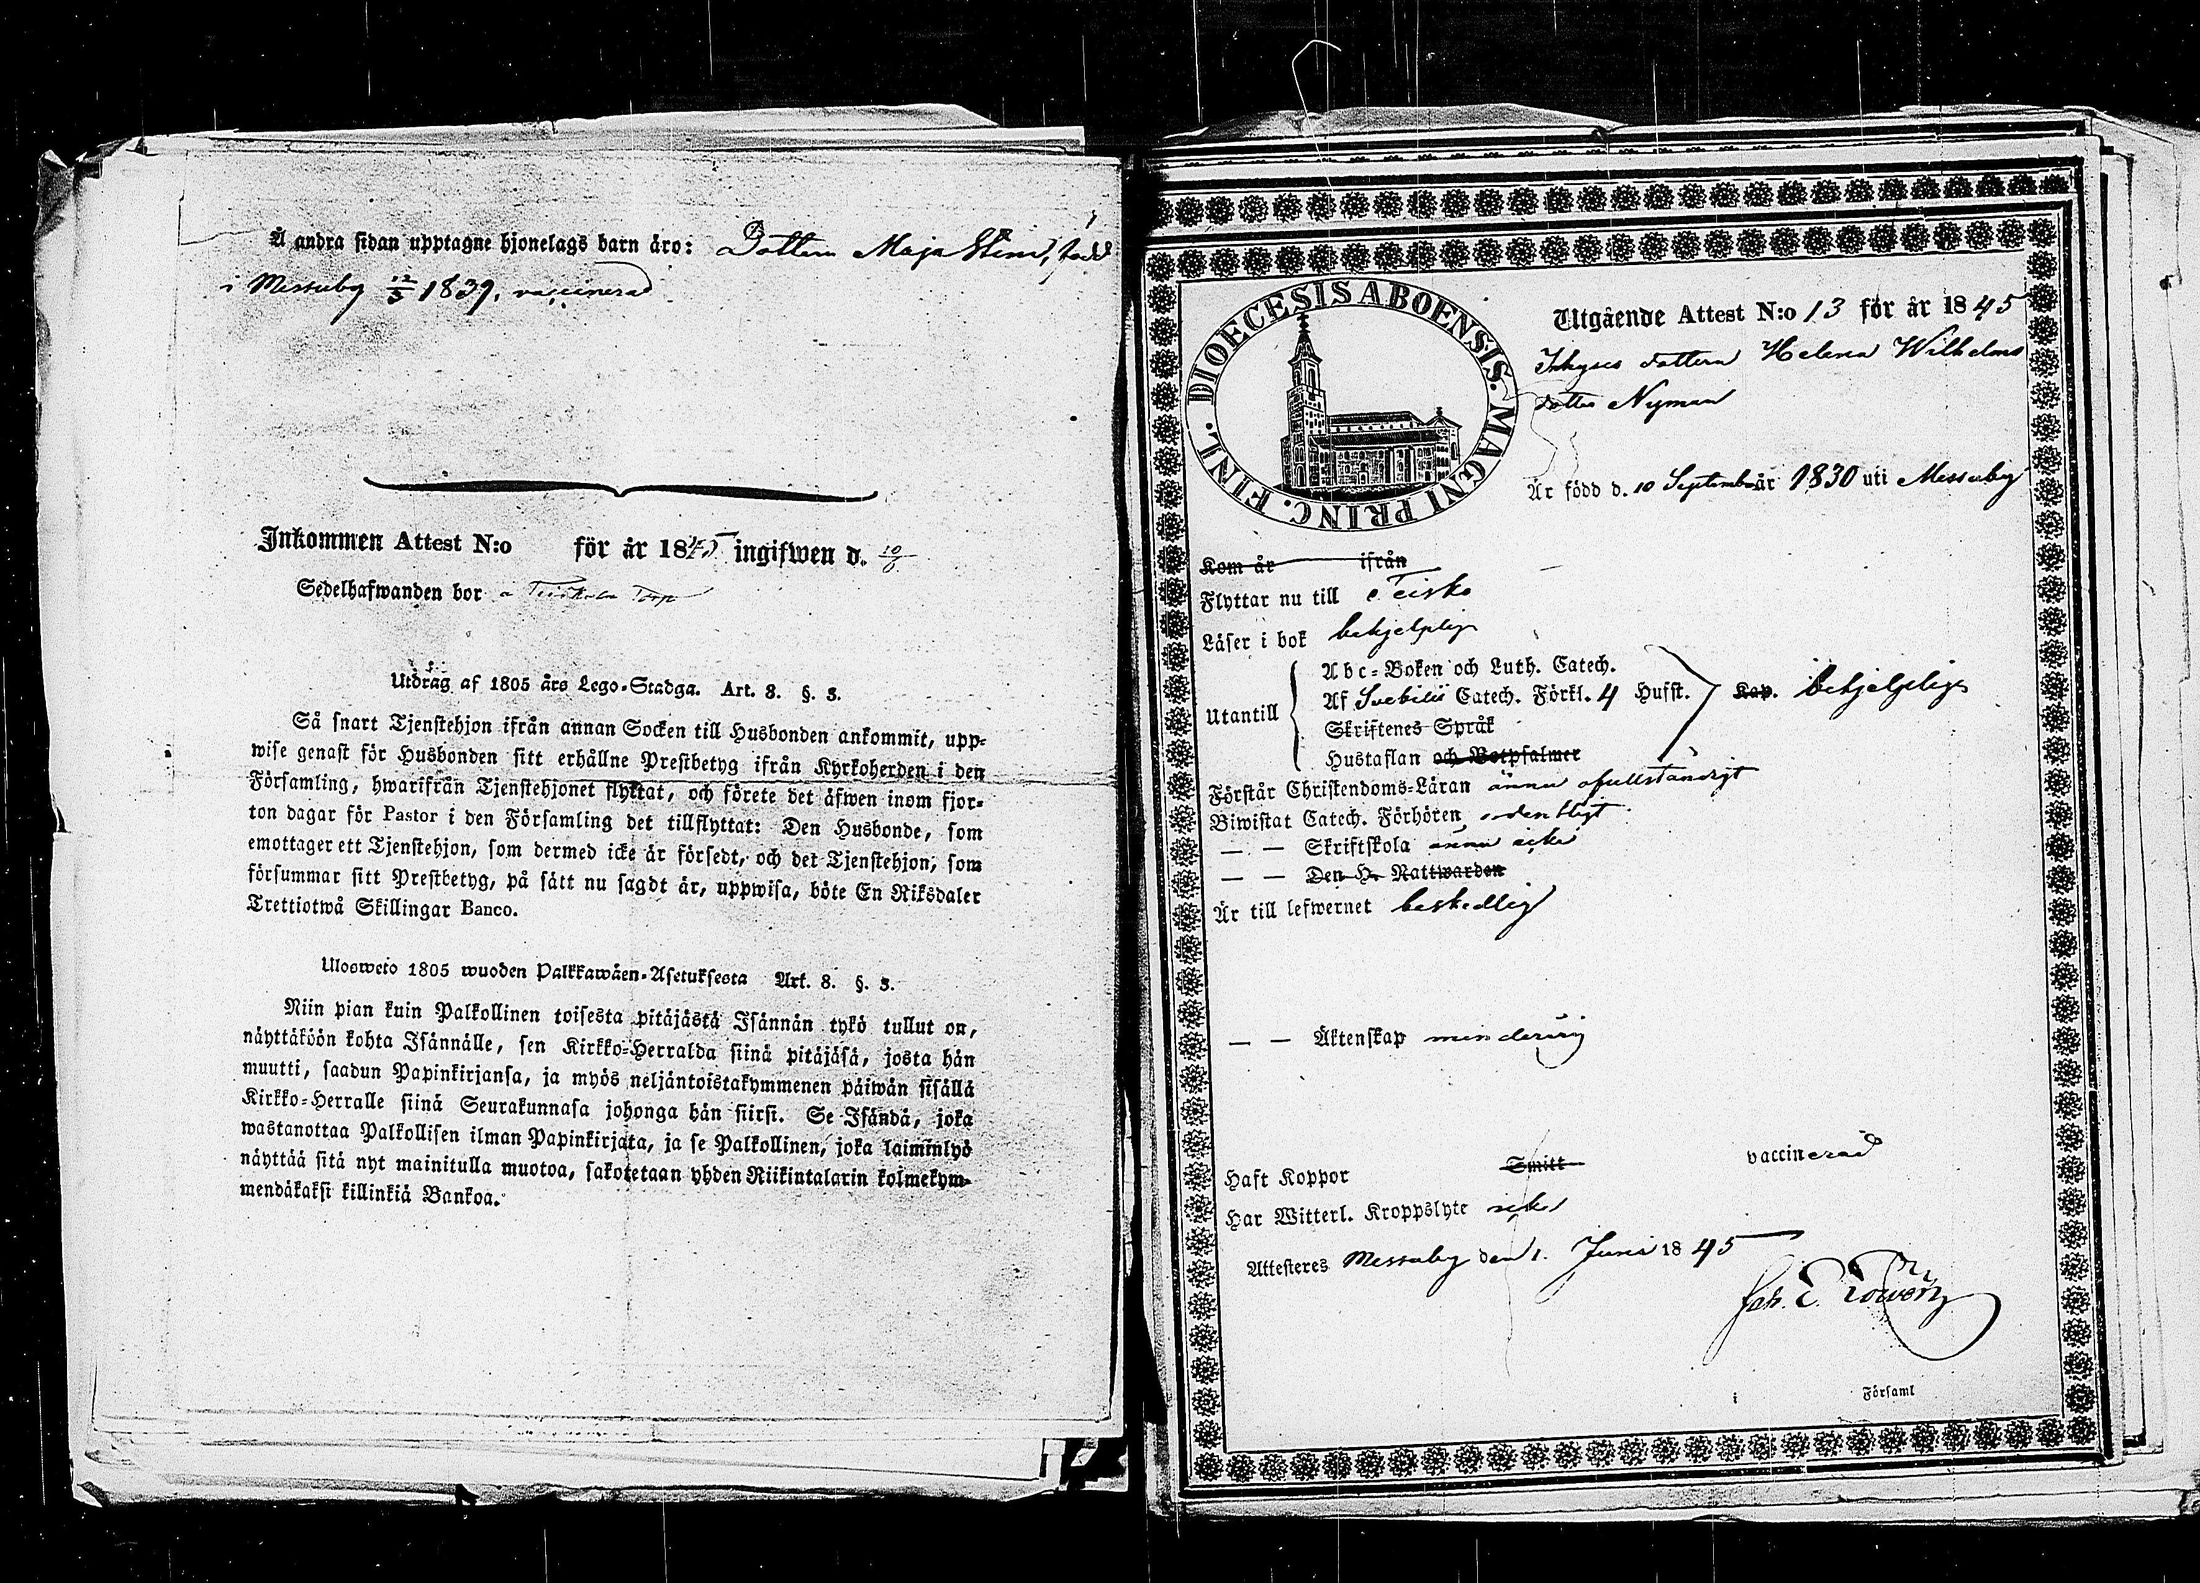 Å andra sidan upptagne hjonelags barn äro: Dottern Maja Stina, född
i Messuby 12/3 1839, vaccinerad
Inkommen Attest N:o för år 1845 ingifwen d. 10/6
Sedelhafwanden bor Torp
Utdrag af 1805 års Lego-Stadga. Art. 8. §. 3.
Så snart Tjenstehjon ifrån annan Socken till Husbonden ankommit, upp-
wise genast för Husbonden sitt erhållne Prestbetyg ifrån Kyrkoherden i den
Församling, hwarifrån Tjenstehjonet flyttat, och förete det äfwen inom fjor-
ton dagar för Pastor i den Församling det tillflyttat: Den Husbonde, som
emottager ett Tjenstehjon, som dermed icke är försedt, och det Tjenstehjon, som
försummar sitt Prestbetyg, på sätt nu sagdt är, uppwisa, böte En Riksdaler
Trettiotwå Skillingar Banco.
Ulosweto 1805 wuoden Palkkawäen-Asetuksesta Art. 8. §. 3.
Niin pian kuin Palkollinen toisesta pitäjästä Isännän tykö tullut on,
näyttäköön kohta Isännälle, sen Kirkko-Herralda siinä pitäjäsä, josta hän
muutti, saadun Papinkirjansa, ja myös neljäntoistakymmenen päiwän sisällä
Kirkko-Herralle siinä Seurakunnasa johonga hän siirsi. Se Isändä, joka
wastanottaa Palkollisen ilman Papinkirjata, ja se Palkollinen, joka laiminlyö
näyttää sitä nyt mainitulla muotoa, sakotetaan yhden Riikintalarin kolmekym-
mendäkaksi killinkiä Bankoa.
DIOECESIS ABOENSIS. MAGNI PRINC. FINL.
Utgående Attest N:o 13 för år 1845
Inhyses dottern Helena Wilhelms
dotter Nyman
Är född d. 10 September år 1830 uti Messuby
Kom år ifrån
Flyttar nu till Teisko
Läser i bok behjelplig
Utantill
Abc-Boken och Luth. Catech.
Af Svebilii Catech. Förkl. 4 Hufst. Kap. behjelpligt
Skriftenes Språk
Hustaflan och Botpsalmer
Förstår Christendoms-Läran ännu ofullständigt
Biwistat Catech. Förhören ordentligt
— — Skriftskola ännu icke
— — Den H. Nattwarden
Är till lefwernet beskedlig
— — Äktenskap minderårig
Haft Koppor Smitt vaccinerad
Har Witterl. Kroppslyte icke
Attesteres Messuby den 1. Juni 1845
i Församl